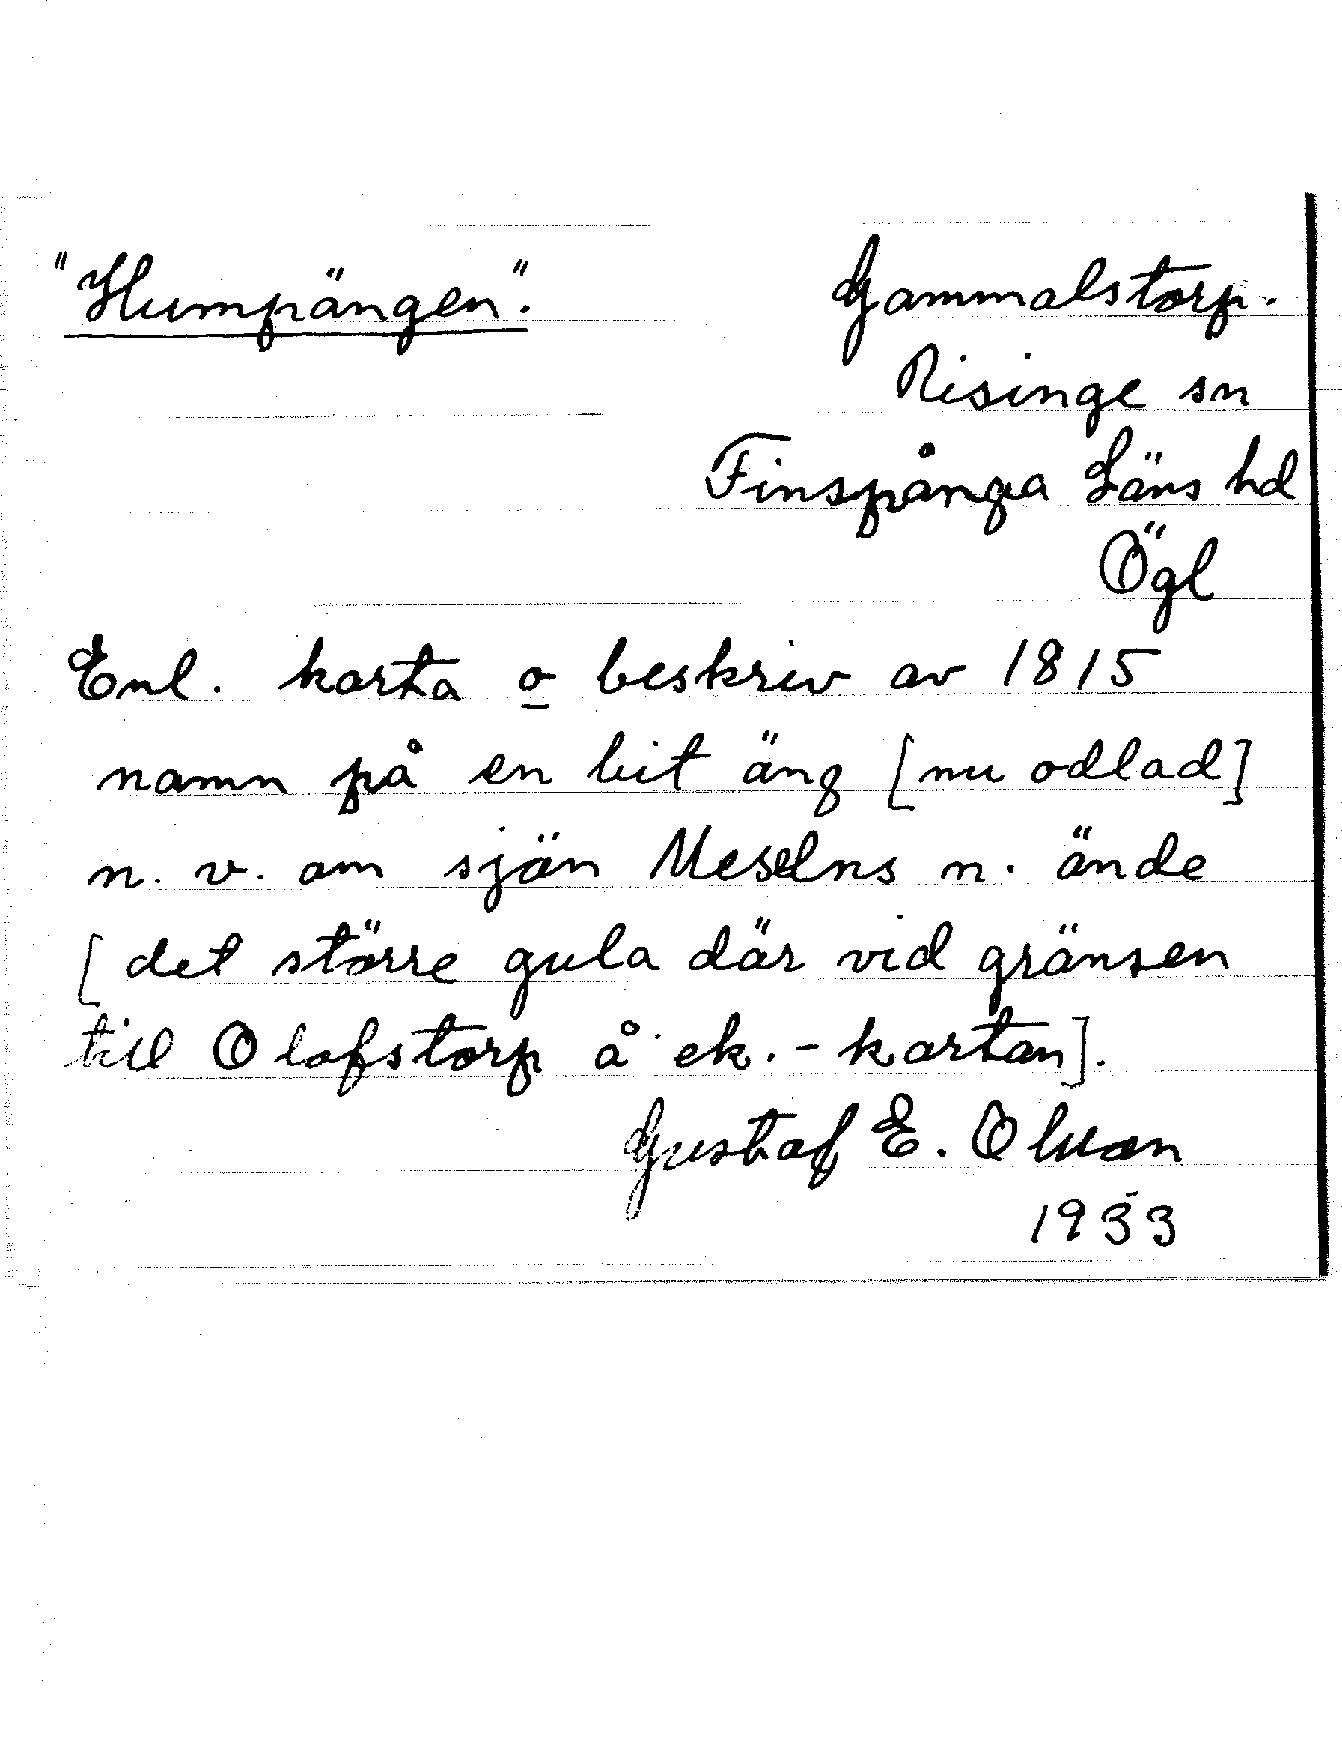 "Humpängen".
Gammalstorp.
Risinge sn
Finspånga Läns hd
Ögl
Enl. karta o beskriv av 1815
namn på en bit äng [nu odlad]
n. v. om sjön Meselns n. ände
[det större gula där vid gränsen
till Olofstorp å ek.-kartan].
Gustaf E. Olsson
1933